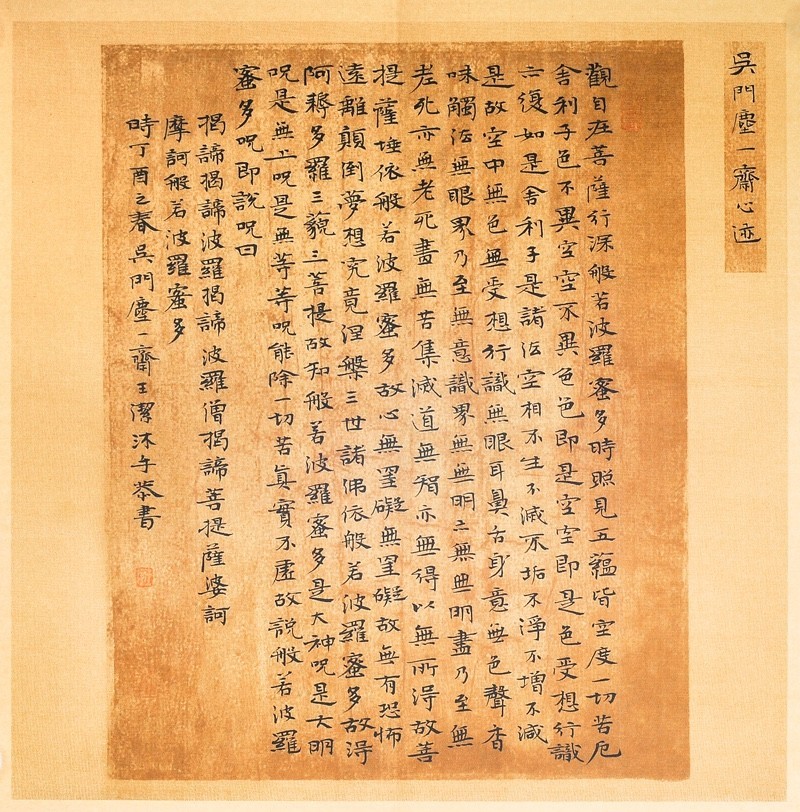 吳門塵一齋心迹
觀自在菩薩行深般若波羅蜜多時照見五蘊皆空度一切苦厄
舍利子色不異空空不異色色即是空空即是色受想行識
亦復如是舍利子是諸法空相不生不滅不垢不淨不增不減
是故空中無色無受想行識無眼耳鼻舌身意無色聲香
味觸法無眼界乃至無意識界無無明亦無無明盡乃至無
老死亦無老死盡無苦集滅道無智亦無得以無所得故菩
提薩埵依般若波羅蜜多故心無罣礙無罣礙故無有恐怖
遠離顛倒夢想究竟涅槃三世諸佛依般若波羅蜜多故得
阿耨多羅三藐三菩提故知般若波羅蜜多是大神咒是大明
咒是無上咒是無等等咒能除一切苦真實不虛故說般若波羅
蜜多咒即說咒曰
揭諦揭諦波羅揭諦波羅僧揭諦菩提薩婆訶
摩訶般若波羅蜜多
時丁酉之春吳門塵一齋王潔沐手恭書